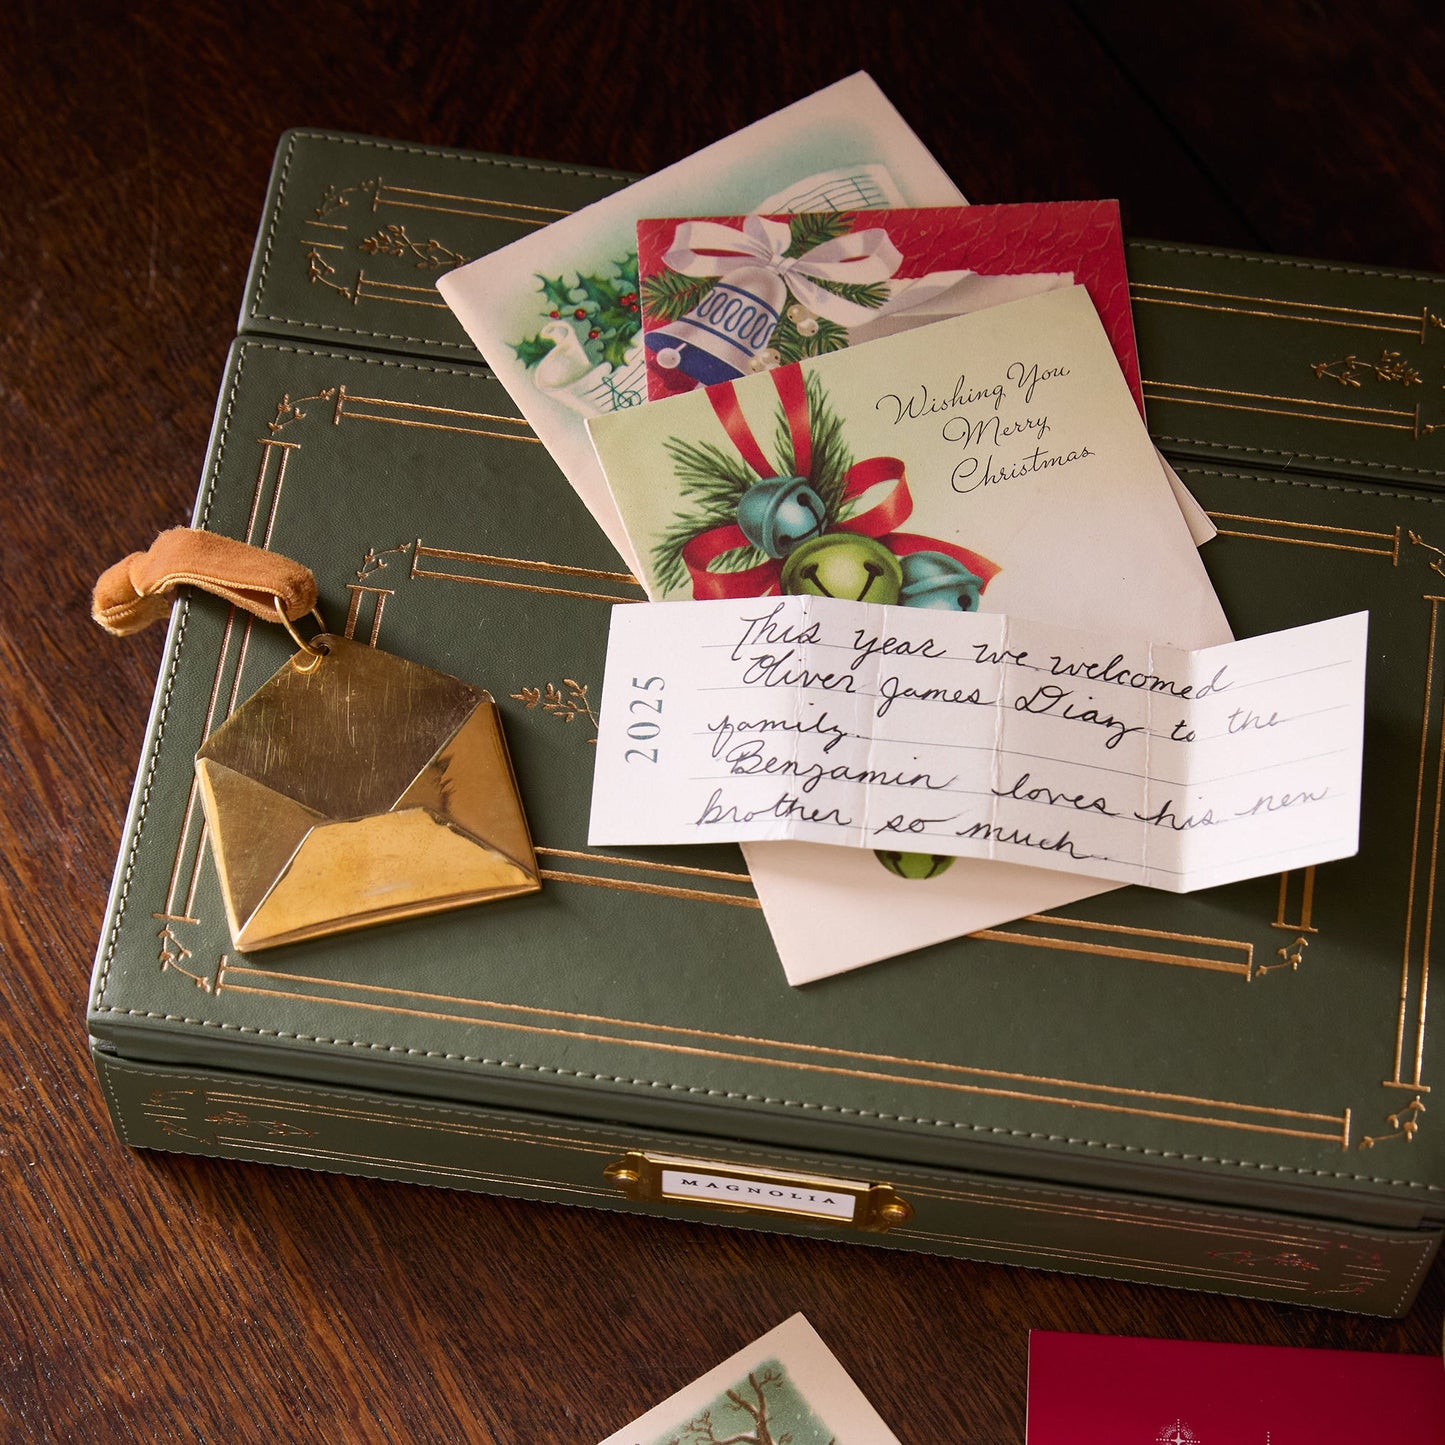 Wishing You
Merry
Christmas
2025
This year we welcomed
Oliver James Diaz to the
family.
Benjamin loves his new
brother so much.
MAGNOLIA